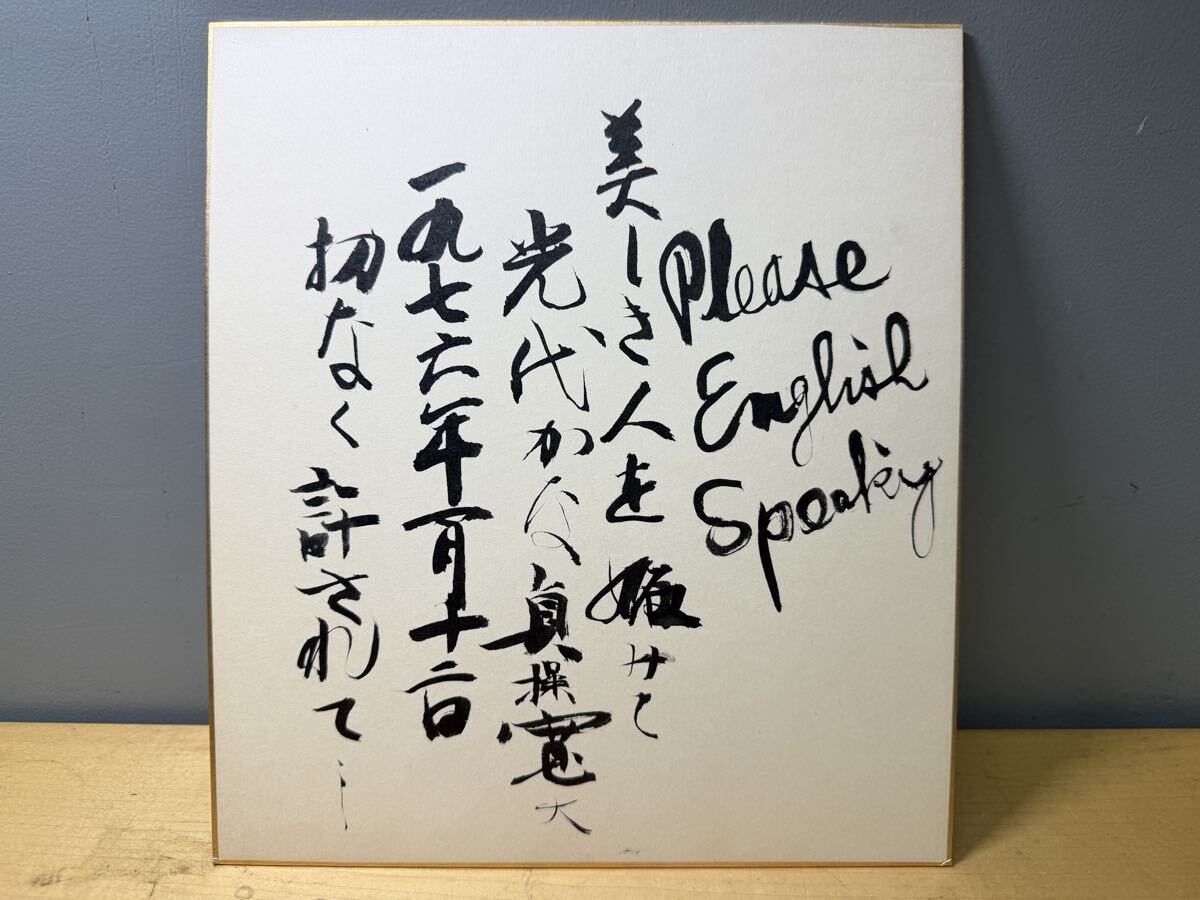 Please
English
Speaking
美しき人を
光代かな 貞操寛大
一九七六年一月十二日
切なく許されて…